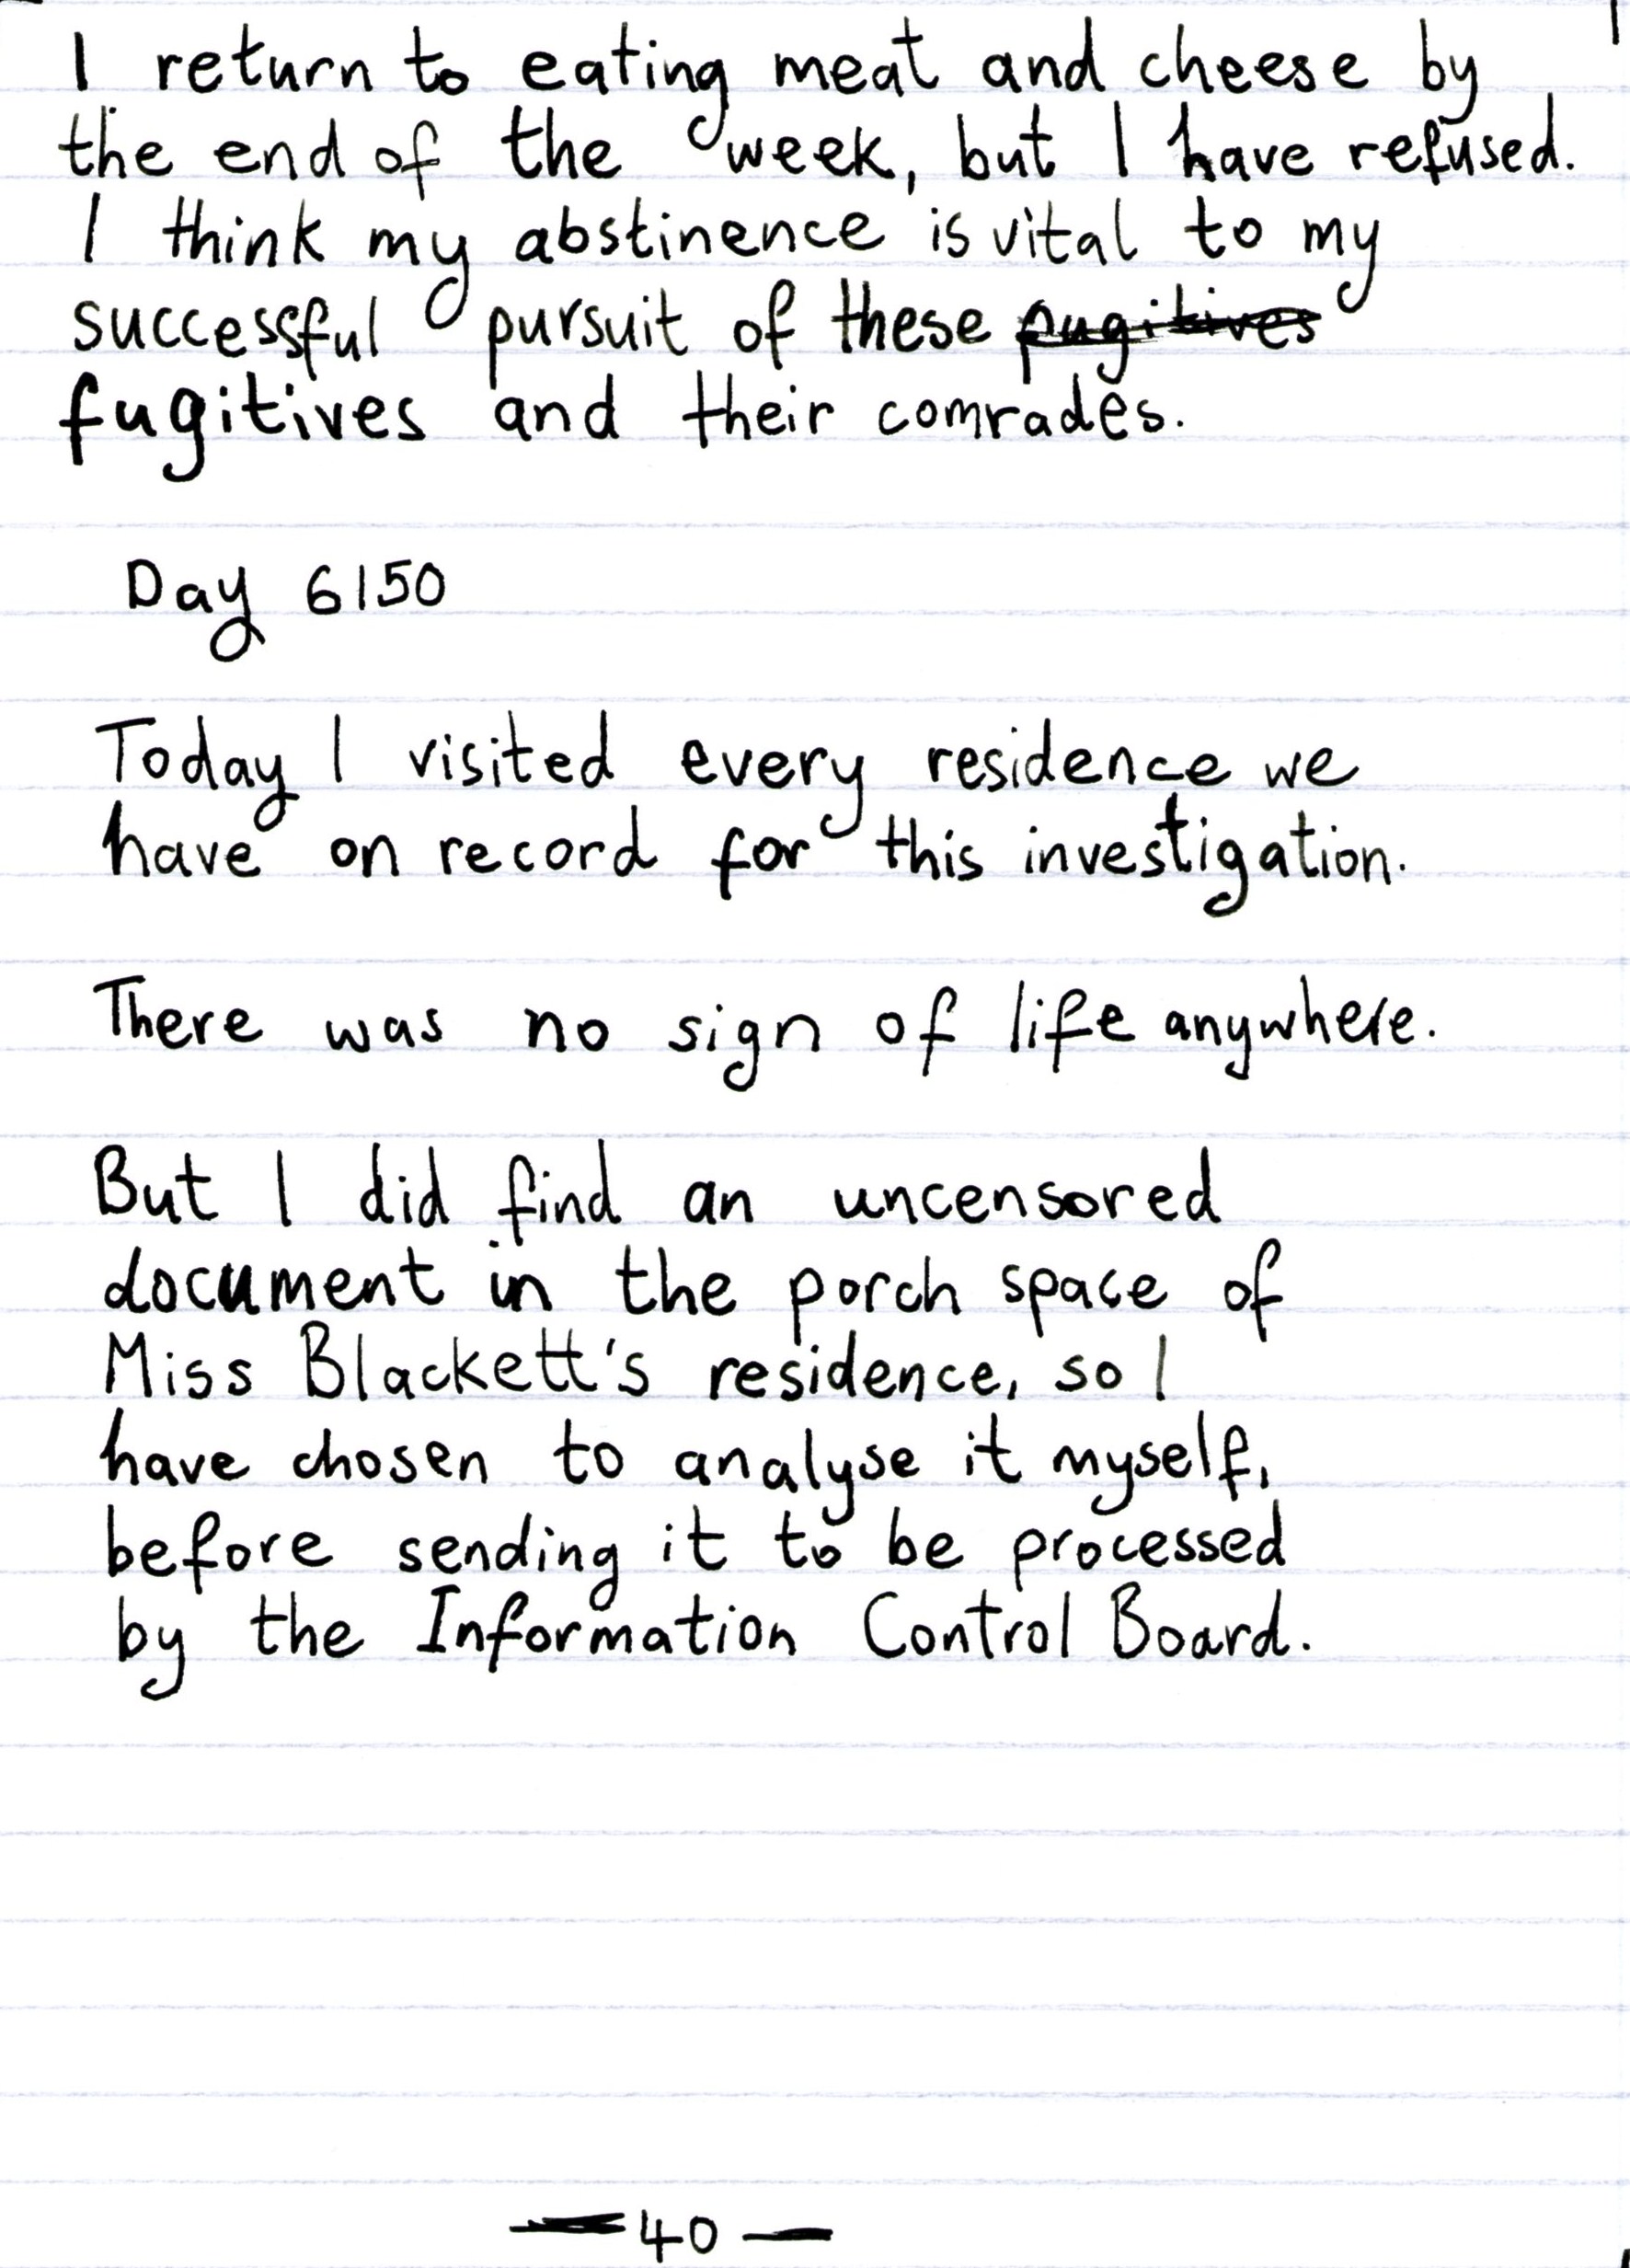 I return to eating meat and cheese by
the end of the week, but I have refused.
I think my abstinence is vital to my
successful pursuit of these fugitives
fugitives and their comrades.
Day 6150
Today I visited every residence we
have on record for this investigation.
There was no sign of life anywhere.
But I did find an uncensored
document in the porch space of
Miss Blackett's residence, so I
have chosen to analyse it myself,
before sending it to be processed
by the Information Control Board.
— 40 —